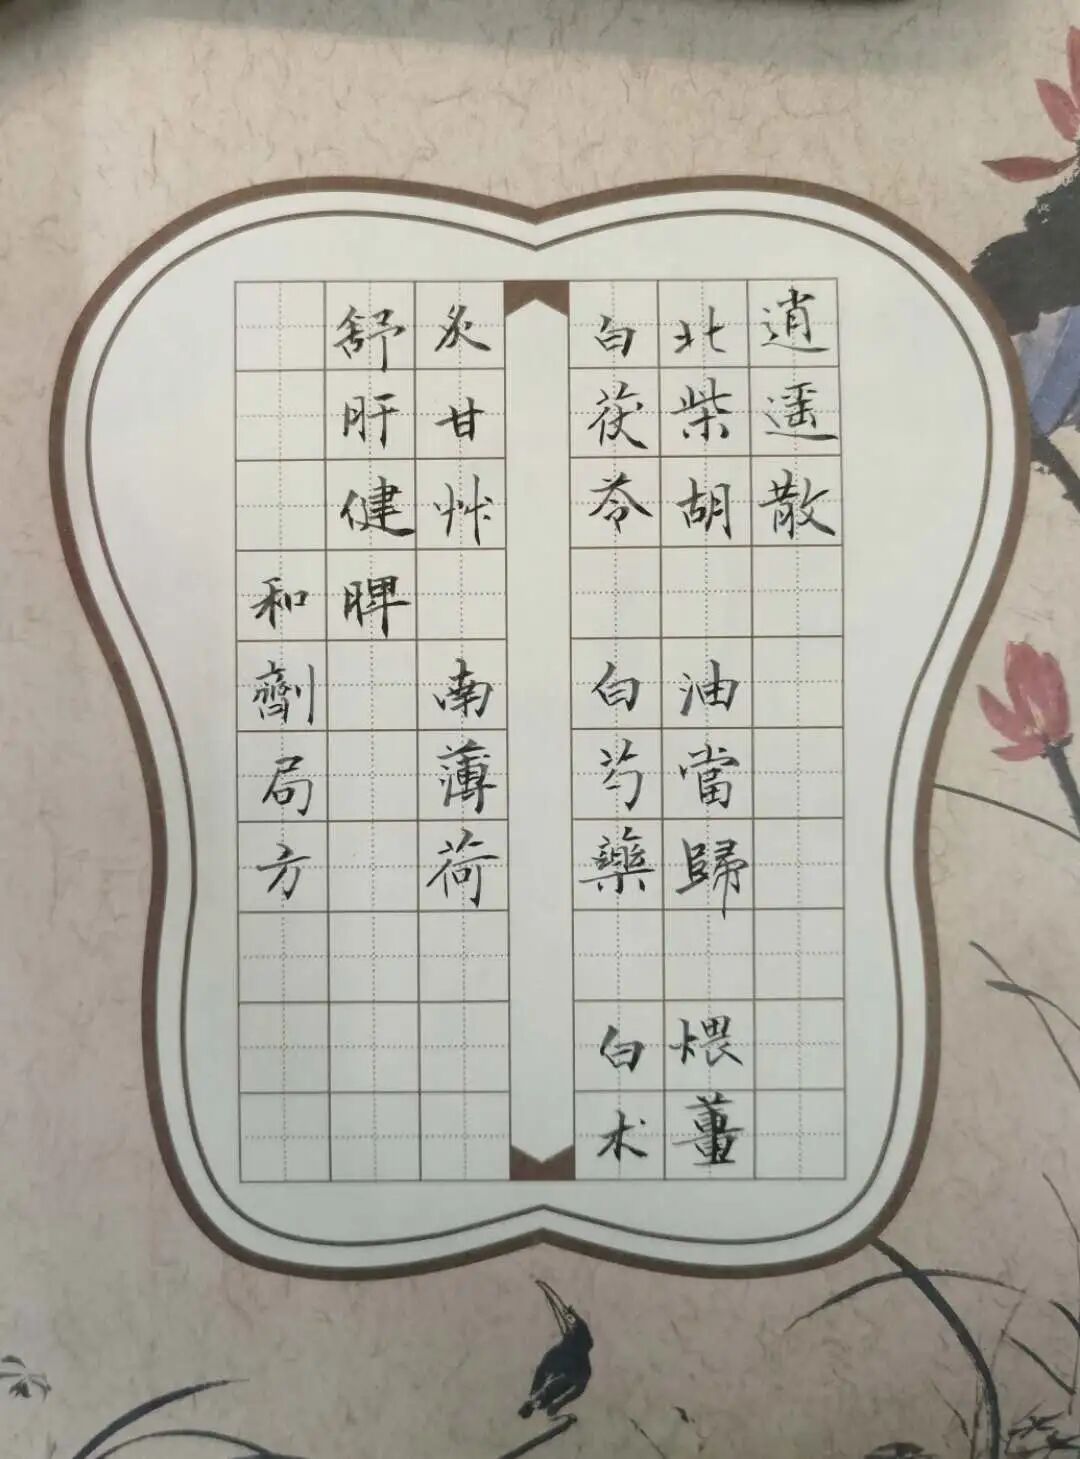 逍遥散
北柴胡 油當歸 煨薑
白茯苓 白芍藥 白术
炙甘艸 南薄荷
舒肝健脾
和劑局方